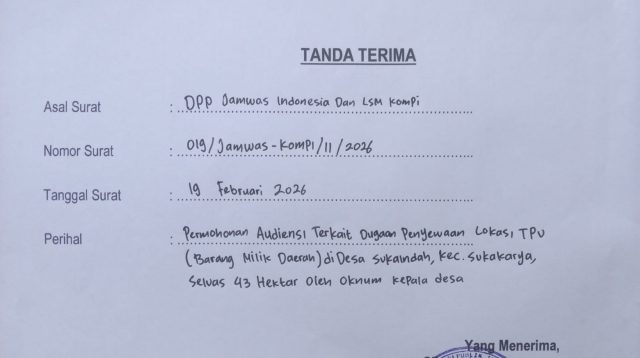 TANDA TERIMA
Asal Surat : DPP Jamwas Indonesia Dan LSM Kompi
Nomor Surat : 019/Jamwas-KOMPI/11/2026
Tanggal Surat : 19 Februari 2026
Perihal : Permohonan Audiensi Terkait Dugaan Penyewaan Lokasi TPU
(Barang Milik Daerah) di Desa Sukaindah, Kec. Sukakarya,
Seluas 43 Hektar Oleh Oknum Kepala desa
Yang Menerima,